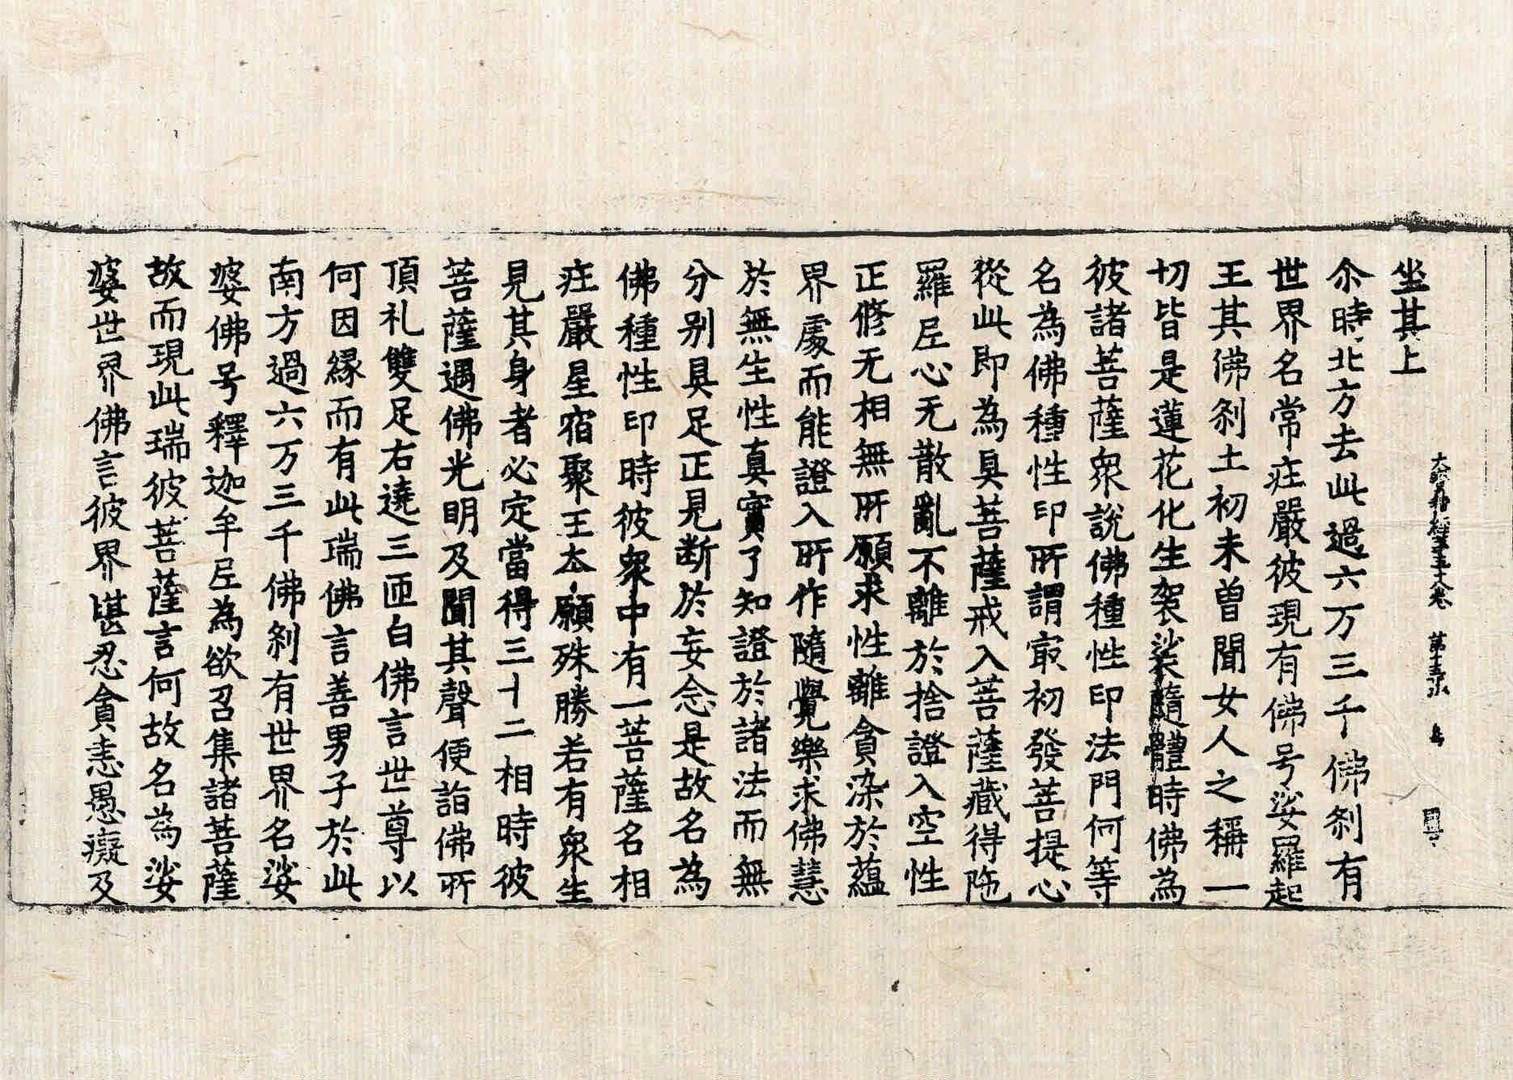 坐其上
尒時北方去此過六万三千佛刹有
世界名常庄嚴彼現有佛号娑羅起
王其佛刹土初未曾聞女人之稱一
切皆是蓮花化生袈裟隨體時佛為
彼諸菩薩衆說佛種性印法門何等
名為佛種性印所謂㝡初發菩提心
從此即為具菩薩戒入菩薩藏得陁
羅尼心无散亂不離於捨證入空性
正修无相無所願求性離貪染於蘊
界處而能證入所作隨覺樂求佛慧
於無生性真實了知證於諸法而無
分別具足正見断於妄念是故名為
佛種性印時彼衆中有一菩薩名相
庄嚴星宿聚王夲願殊勝若有衆生
見其身者必定當得三十二相時彼
菩薩遇佛光明及聞其聲便詣佛所
頂礼雙足右遶三匝白佛言世尊以
何因緣而有此瑞佛言善男子於此
南方過六万三千佛刹有世界名娑
婆佛号釋迦牟尼為欲召集諸菩薩
故而現此瑞彼菩薩言何故名為娑
婆世界佛言彼界堪忍貪恚愚癡及